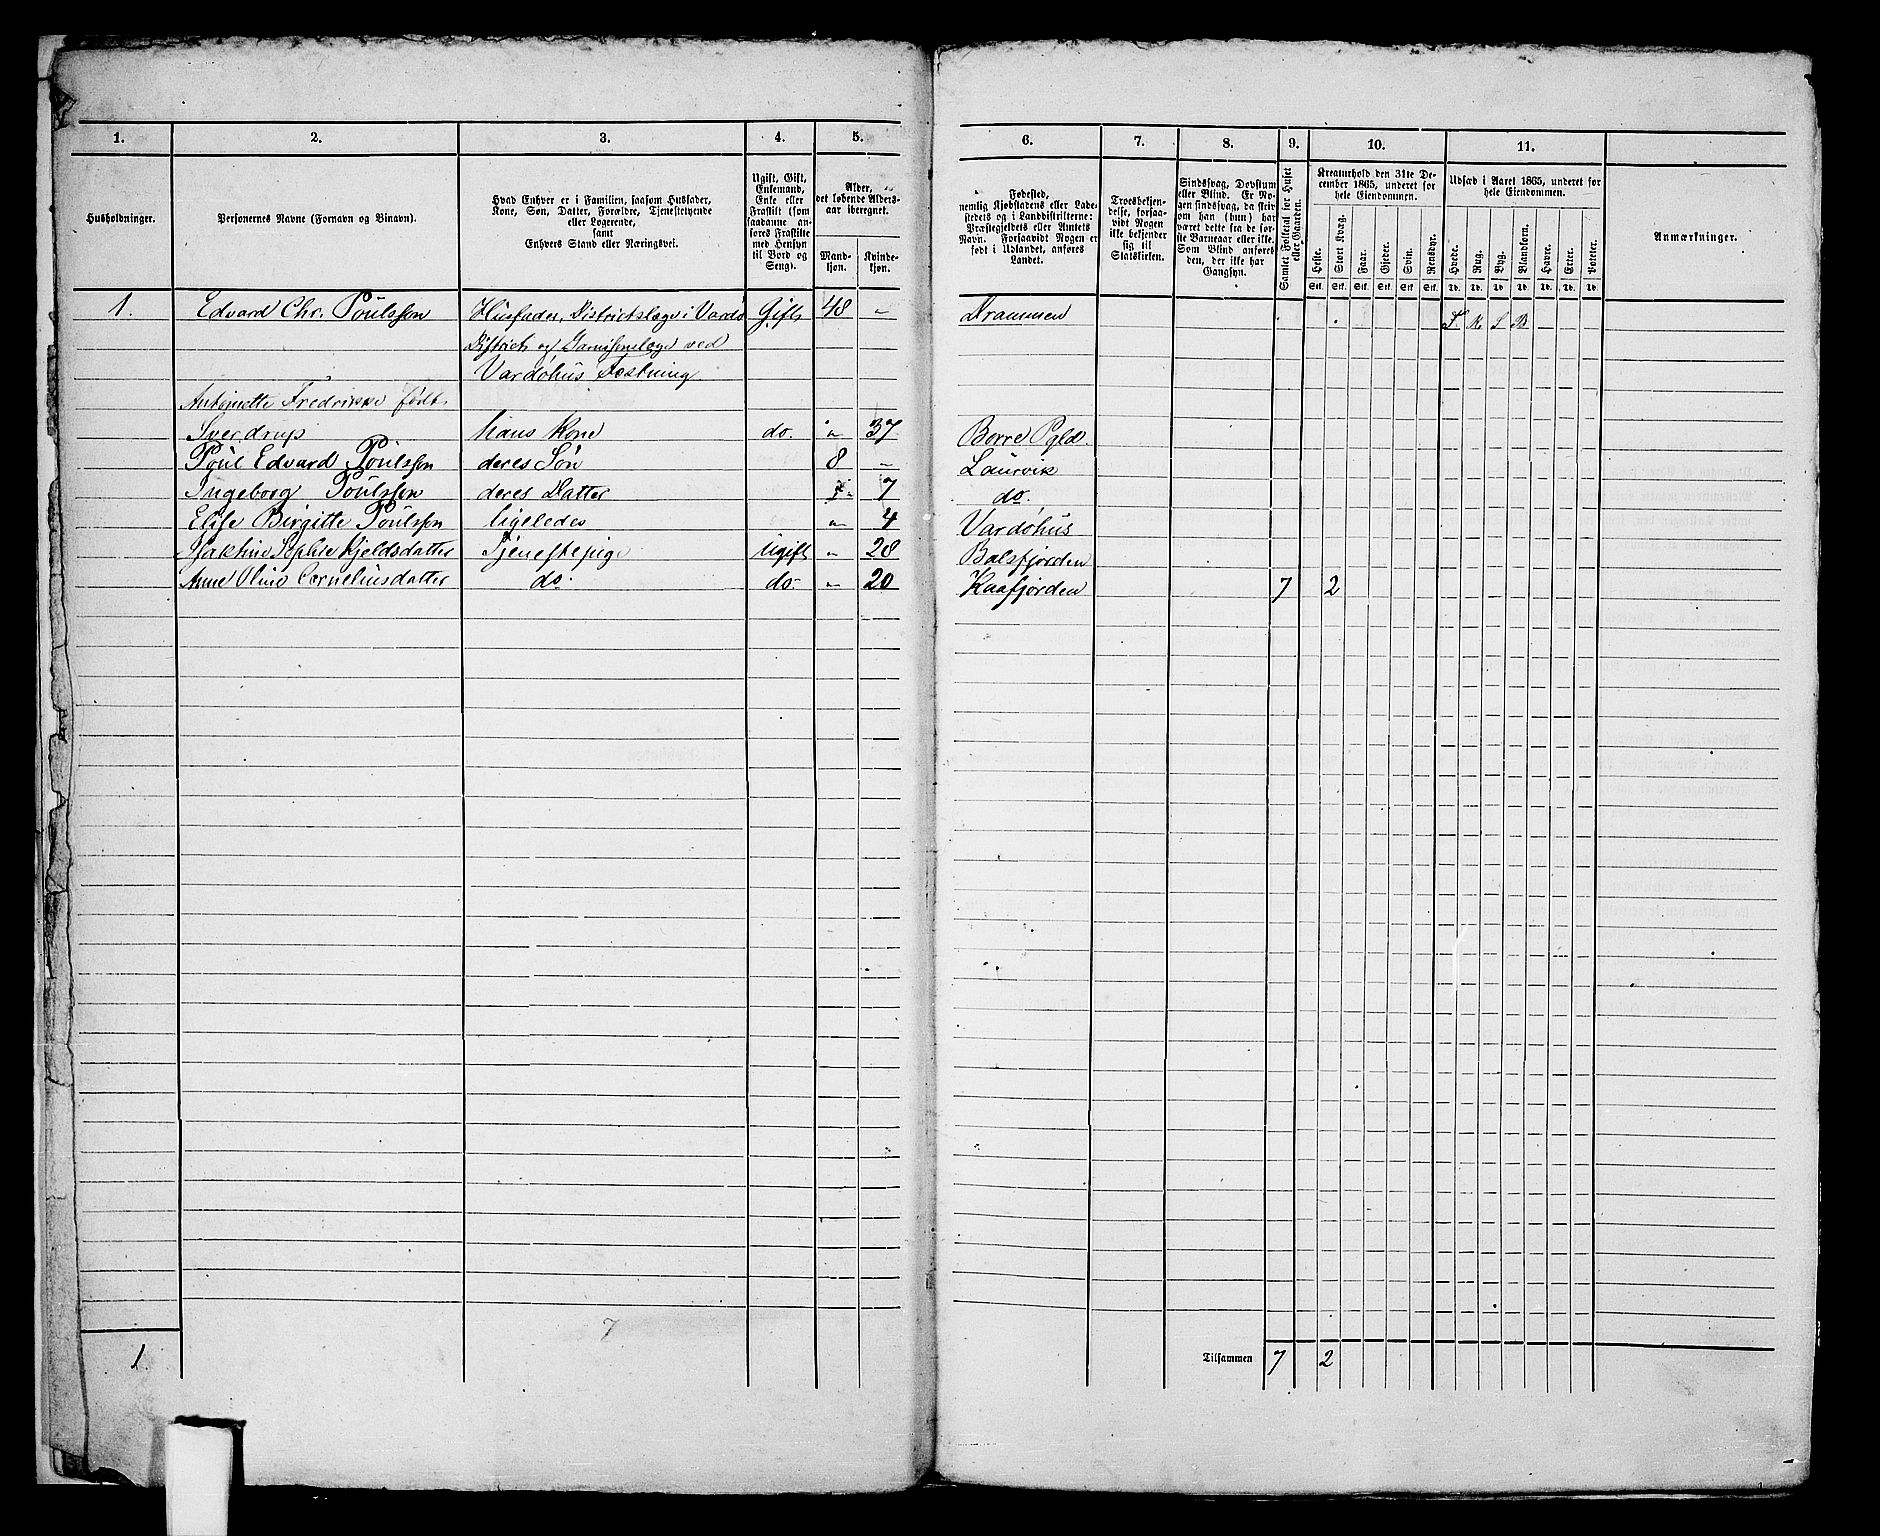 1. 2. 3. 4. 5. 6. 7. 8. 9. 10. 11.
Husholdninger.
Personernes Navne (Fornavn og Binavn).
Hvad Enhver er i Familien, saasom Husfader,
Kone, Søn, Datter, Forældre, Tjenestetyende
eller Logerende,
samt
Enhvers Stand eller Næringsvei.
Ugift, Gift,
Enkemand,
Enke eller
Fraskilt (som
saadanne an-
føres Fraskilte
med Hensyn
til Bord og
Seng).
Alder,
det løbende Alders-
aar iberegnet.
Mand-
kjøn.
Kvinde-
kjøn.
Fødested,
nemlig Kjøbstadens eller Lade-
stedets og i Landdistrikterne:
Præstegjeldets eller Amtets
Navn. Forsaavidt Nogen er
født i Udlandet, anføres
Landet.
Troesbekjen-
delse, forsaa-
vidt Nogen
ikke bekjender
sig til
Statskirken.
Sindssvag, Døvstum
eller Blind. Er No-
gen sindssvag, da skriv
om han (hun) har
været dette fra de før-
ste Barneaar eller ikke.
Som Blind anføres
den, der ikke har
Gangsyn.
Samlet Folketal for Huset
eller Gaarden.
Kreaturhold den 31te De-
cember 1865, underet for
hele Eiendommen.
Heste.
Stort Kvæg.
Faar.
Gjeder.
Svin.
Rensdyr.
Stk. Stk. Stk. Stk. Stk. Stk.
Udsæd i Aaret 1865, underet for
hele Eiendommen.
Hvede.
Rug.
Byg.
Blandkorn.
Havre.
Erter.
Poteter.
Td. Td. Td. Td. Td. Td. Td.
Anmærkninger.
1. Edvard Chr. Poulsson Husfader, Districtslæge i Vardø Gift 48 " Drammen
District og Garnisonslæge ved
Vardøhus Fæstning
Antoinette Fredrikke født
Sverdrup hans Kone do. " 37 Borre Pgld.
Poul Edvard Poulsson deres Søn 8 " Laurvik
Ingeborg Poulsson deres Datter " 7 do.
Elise Birgitte Poulsson ligeledes " 4 Vardøhus
Jakobine Sophie Kjeldsdatter Tjenestepige Ugift " 28 Balsfjorden
Anne Oline Corneliusdatter do. do. " 20 Kaafjorden 7 2
7
1. Tilsammen 7 2